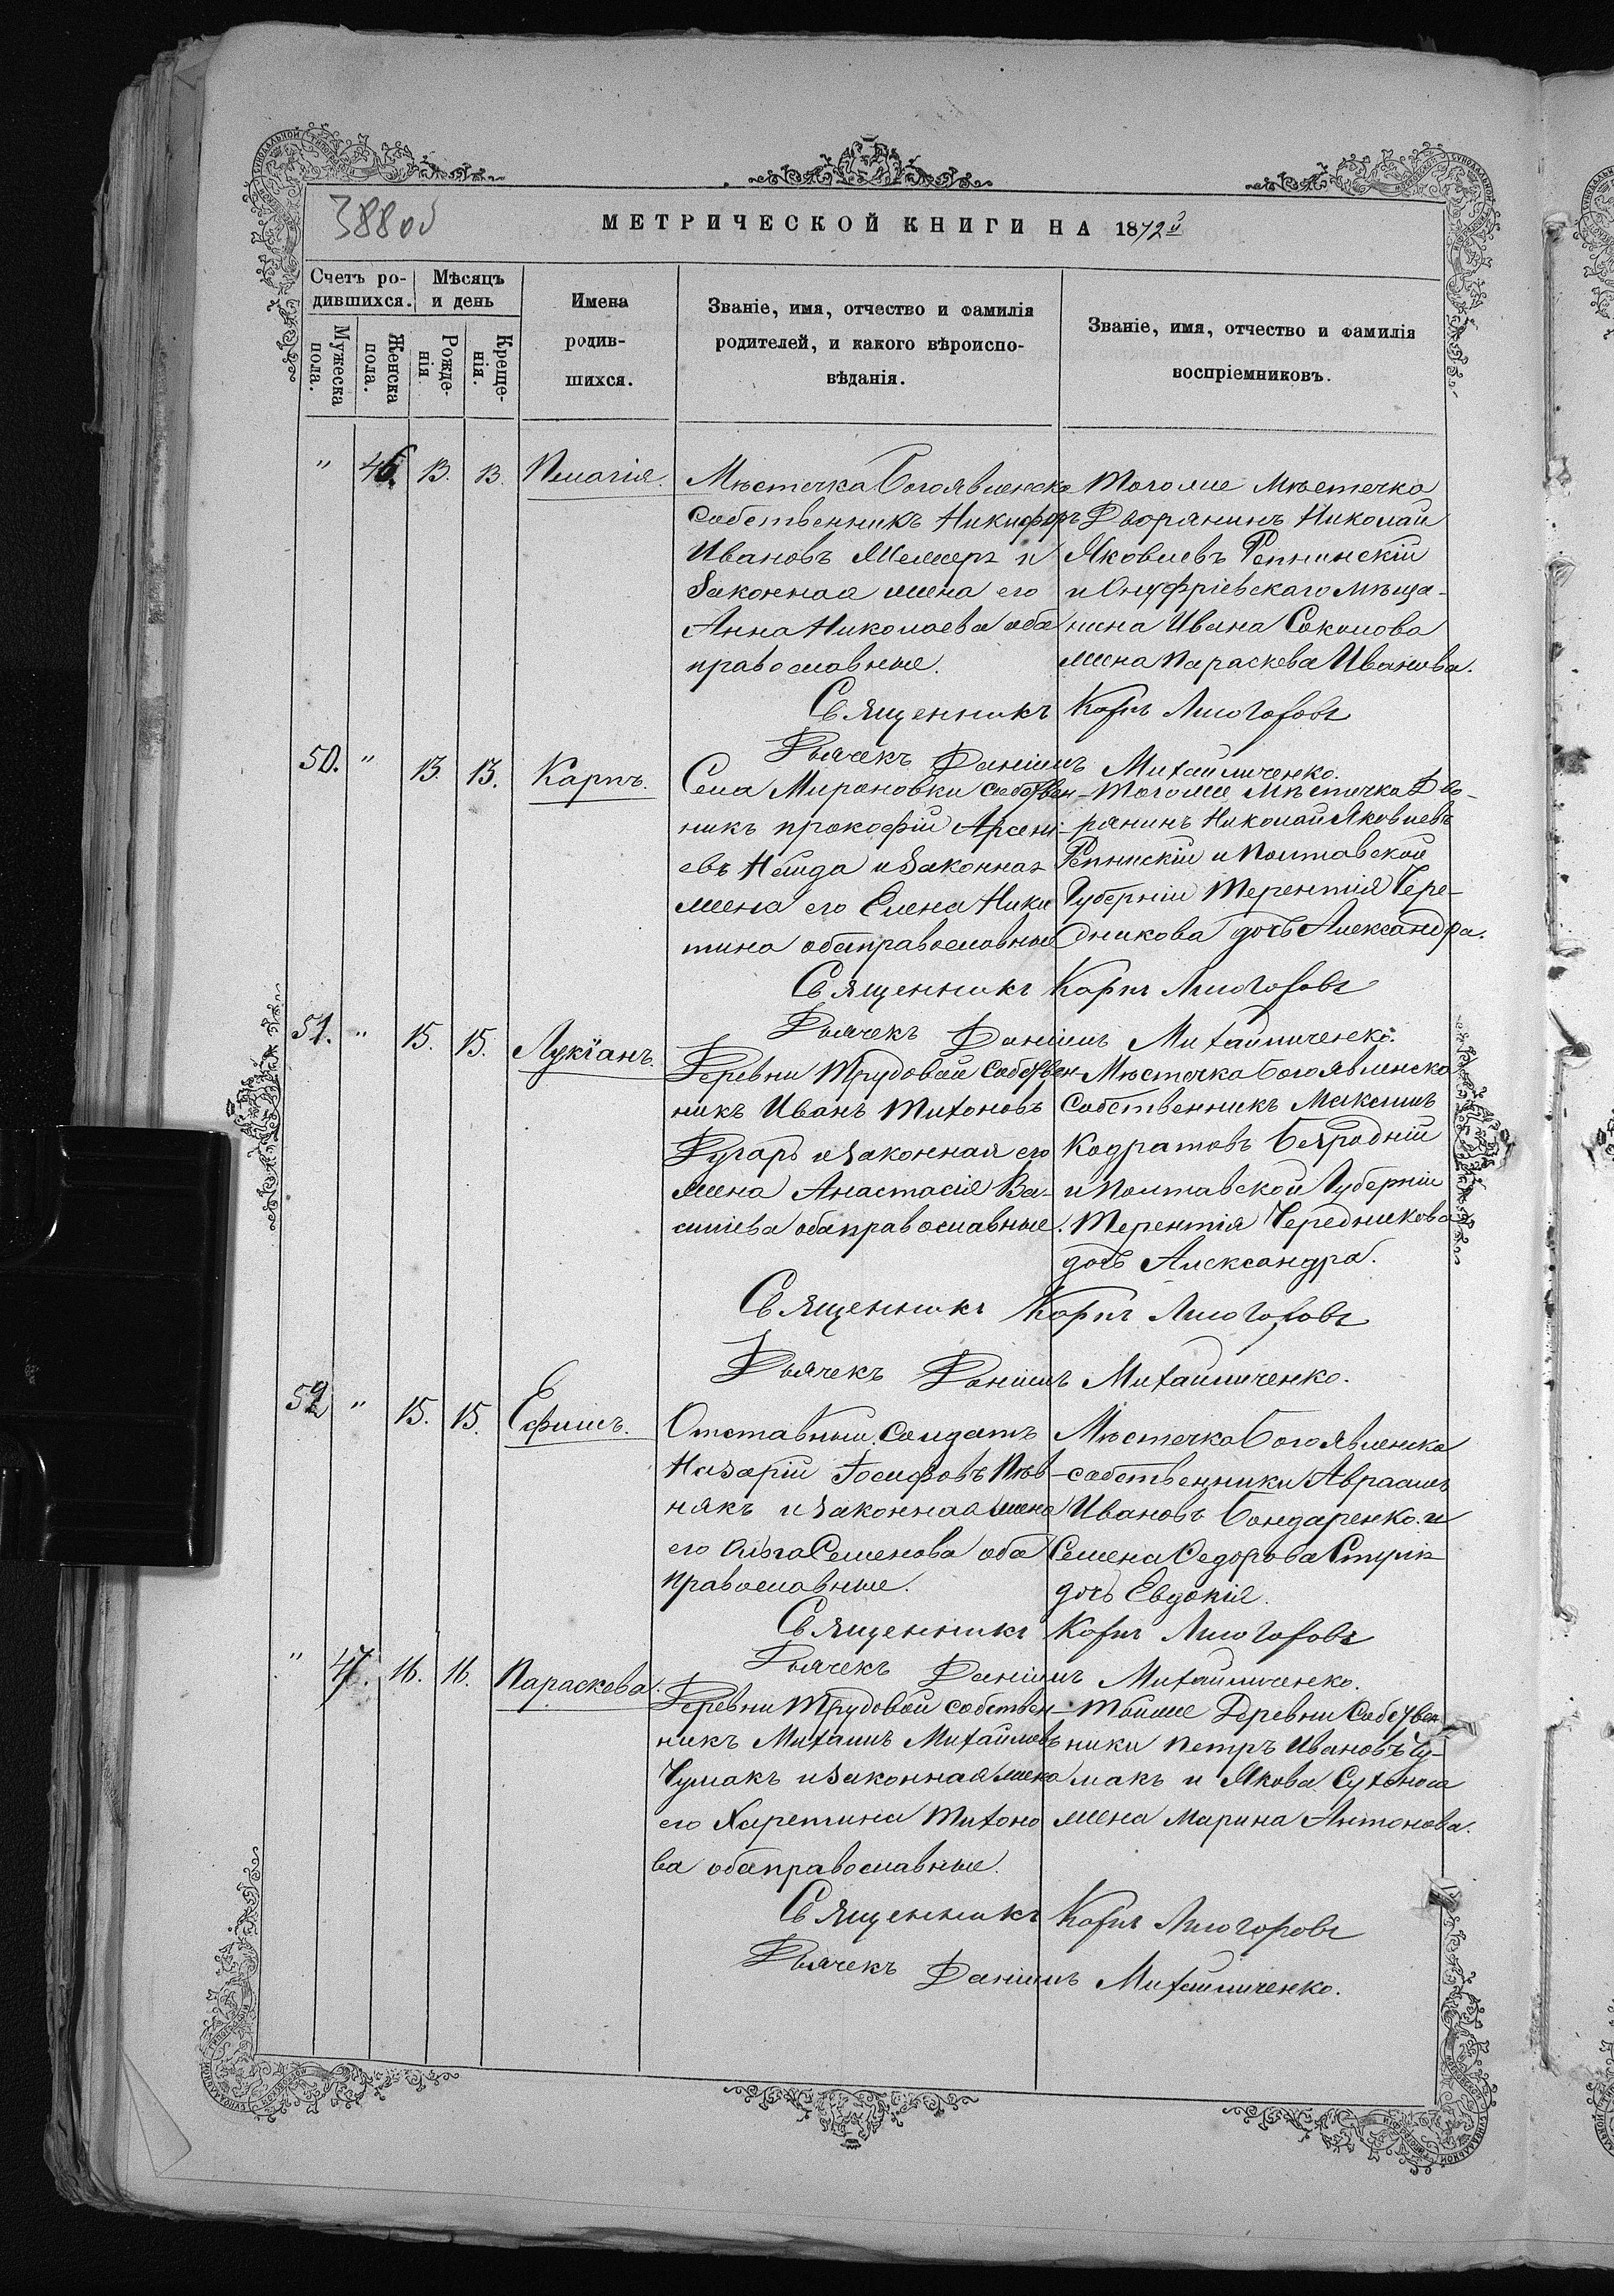 388 об
МЕТРИЧЕСКОЙ КНИГИ НА 1872й
Счетъ ро-
дившихся.
Мѣсяцъ
и день
Мужеска
пола.
Женска
пола.
Рожде-
нія.
Креще-
нія.
Имена
родив-
шихся.
Званіе, имя, отчество и фамилія
родителей, и какого вѣроиспо-
вѣданія.
Званіе, имя, отчество и фамилія
воспріемниковъ.
" 46. 13. 13. Пелагія.
Мѣстечка Богоявленска
собственникъ Никифоръ
Ивановъ и
законная жена его
Анна Николаева оба
православные.
Тогоже Мѣстечка
Дворянинъ Николай
Яковлевъ Репнинскій
и Онуфріевскаго мѣща-
нина Ивана Соколова
жена Параскева Иванова.
Священникъ Карпъ Лисогоровъ
Дьячекъ Даніилъ Михайличенко.
50. " 13. 13. Карпъ.
Села Мирановки собствен-
никъ Прокофій Арсені-
евъ и законная
жена его Елена Ники
тина оба православные
Тогоже Мѣстечка Дво-
рянинъ Николай Яковлевъ
Репнинскій и Полтавской
Губерніи Терентія Чере-
дникова дочь Александра.
Священникъ Карпъ Лисогоровъ
Дьячекъ Даніилъ Михайличенко.
51. " 15. 15. Лукіанъ.
Деревни Трудовой собствен
никъ Иванъ Тихоновъ
Дугарь и законная его
жена Анастасія Ва-
силіева оба православные.
Мѣстечка Богоявленска
собственникъ Максимъ
Кодратовъ
и Полтавской Губерніи
Терентія Чередникова
дочь Александра.
Священникъ Карпъ Лисогоровъ
Дьячекъ Даніилъ Михайличенко.
52 " 15. 15. Ефимъ.
Отставный солдатъ
Назарій Іосифовъ Пѣв-
някъ и законная жена
его Ольга Семенова оба
православные.
Мѣстечка Богоявленска
собственники Авраамъ
Ивановъ Бондаренко и
Семена Федорова
дочь Евдокія.
Священникъ Карпъ Лисогоровъ
Дьячекъ Даніилъ Михайличенко.
" 47. 16. 16. Параскева.
Деревни Трудовой собствен-
никъ Михаилъ Михайловъ
Чумакъ и законная жена
его Харетина Тихоно
ва оба православные.
Тойже Деревни собствен
ники Петръ Ивановъ Чу-
макъ и Якова Сухоноса
жена Марина Антонова.
Священникъ Карпъ Лисогоровъ
Дьячекъ Даніилъ Михайличенко.